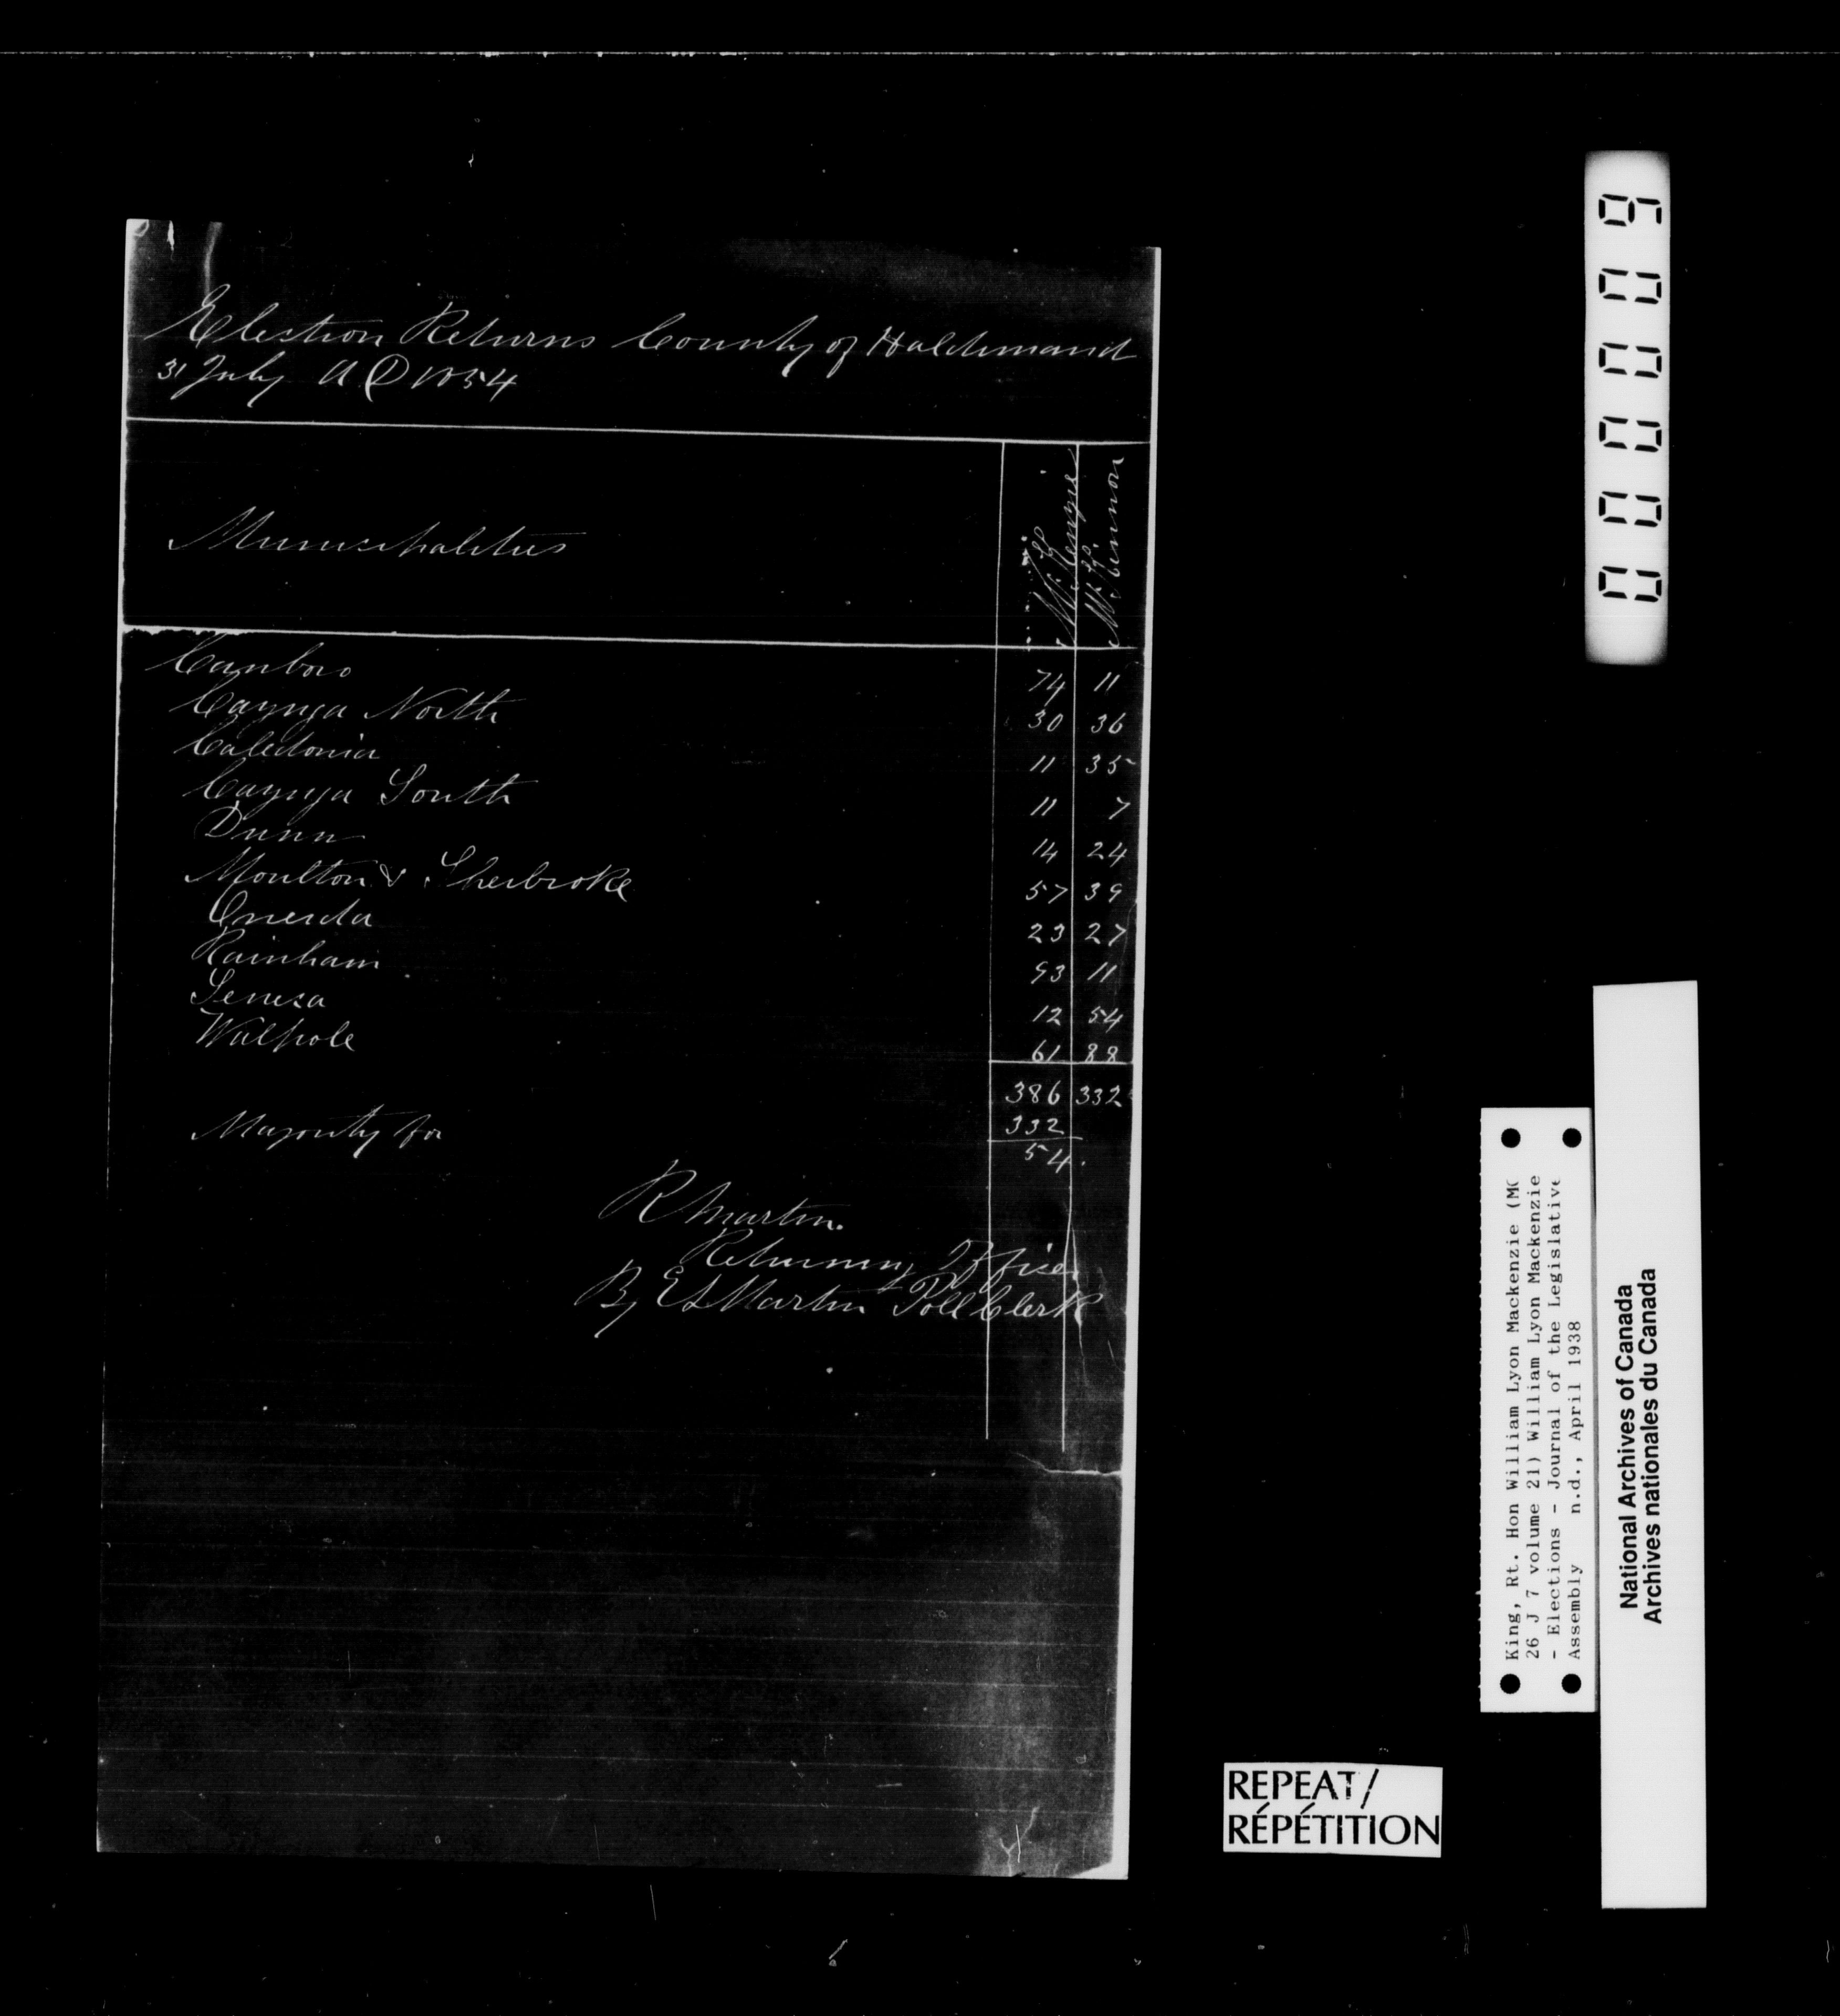 Election Returns County of Haldimand
31 July A D 1854
Municipalities McKenzie McKinnon
Canboro 74 11
Cayuga North 30 36
Caledonia 11 35
Cayuga South 11 7
Dunn 14 24
Moulton & Sherbroke 57 39
Oneida 23 27
Rainham 93 11
Seneca 12 54
Walpole 61 88
386 332
Majority for 332
54.
R Martin.
Returning Officer
By E L Martin Poll Clerk
000009
King, Rt. Hon William Lyon Mackenzie (MG
26 J 7 volume 21) William Lyon Mackenzie
- Elections - Journal of the Legislative
Assembly n.d., April 1938
National Archives of Canada
Archives nationales du Canada
REPEAT/
RÉPÉTITION